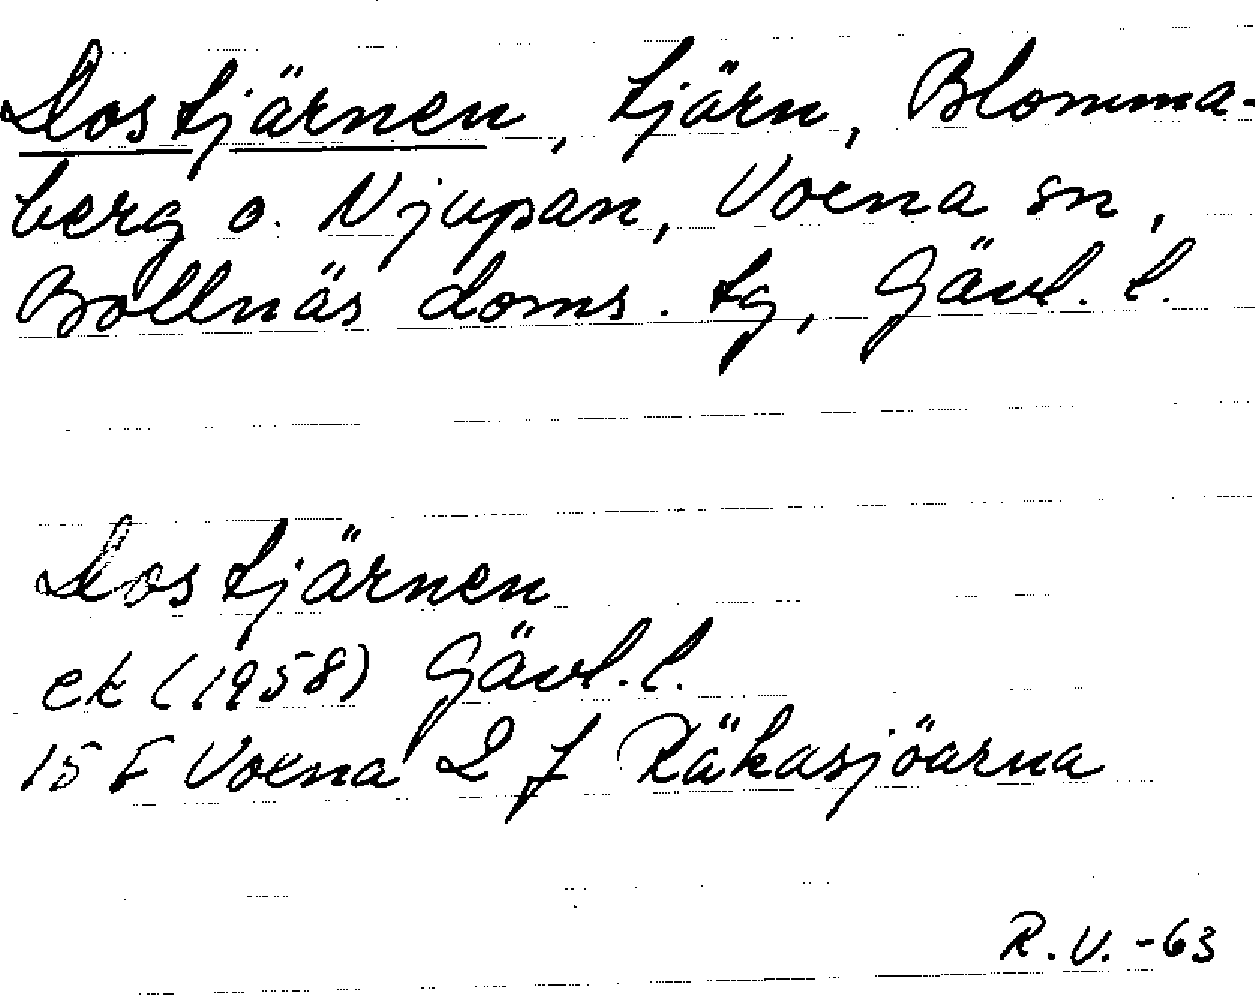 Lostjärnen, tjärn, Blomma-
berg o. Njupan, Voxna sn,
Bollnäs doms. tg, Gävl. l.
Lostjärnen
ek (1958) Gävl. l.
15 F Voxna 2 f Räkasjöarna
R.V. -63